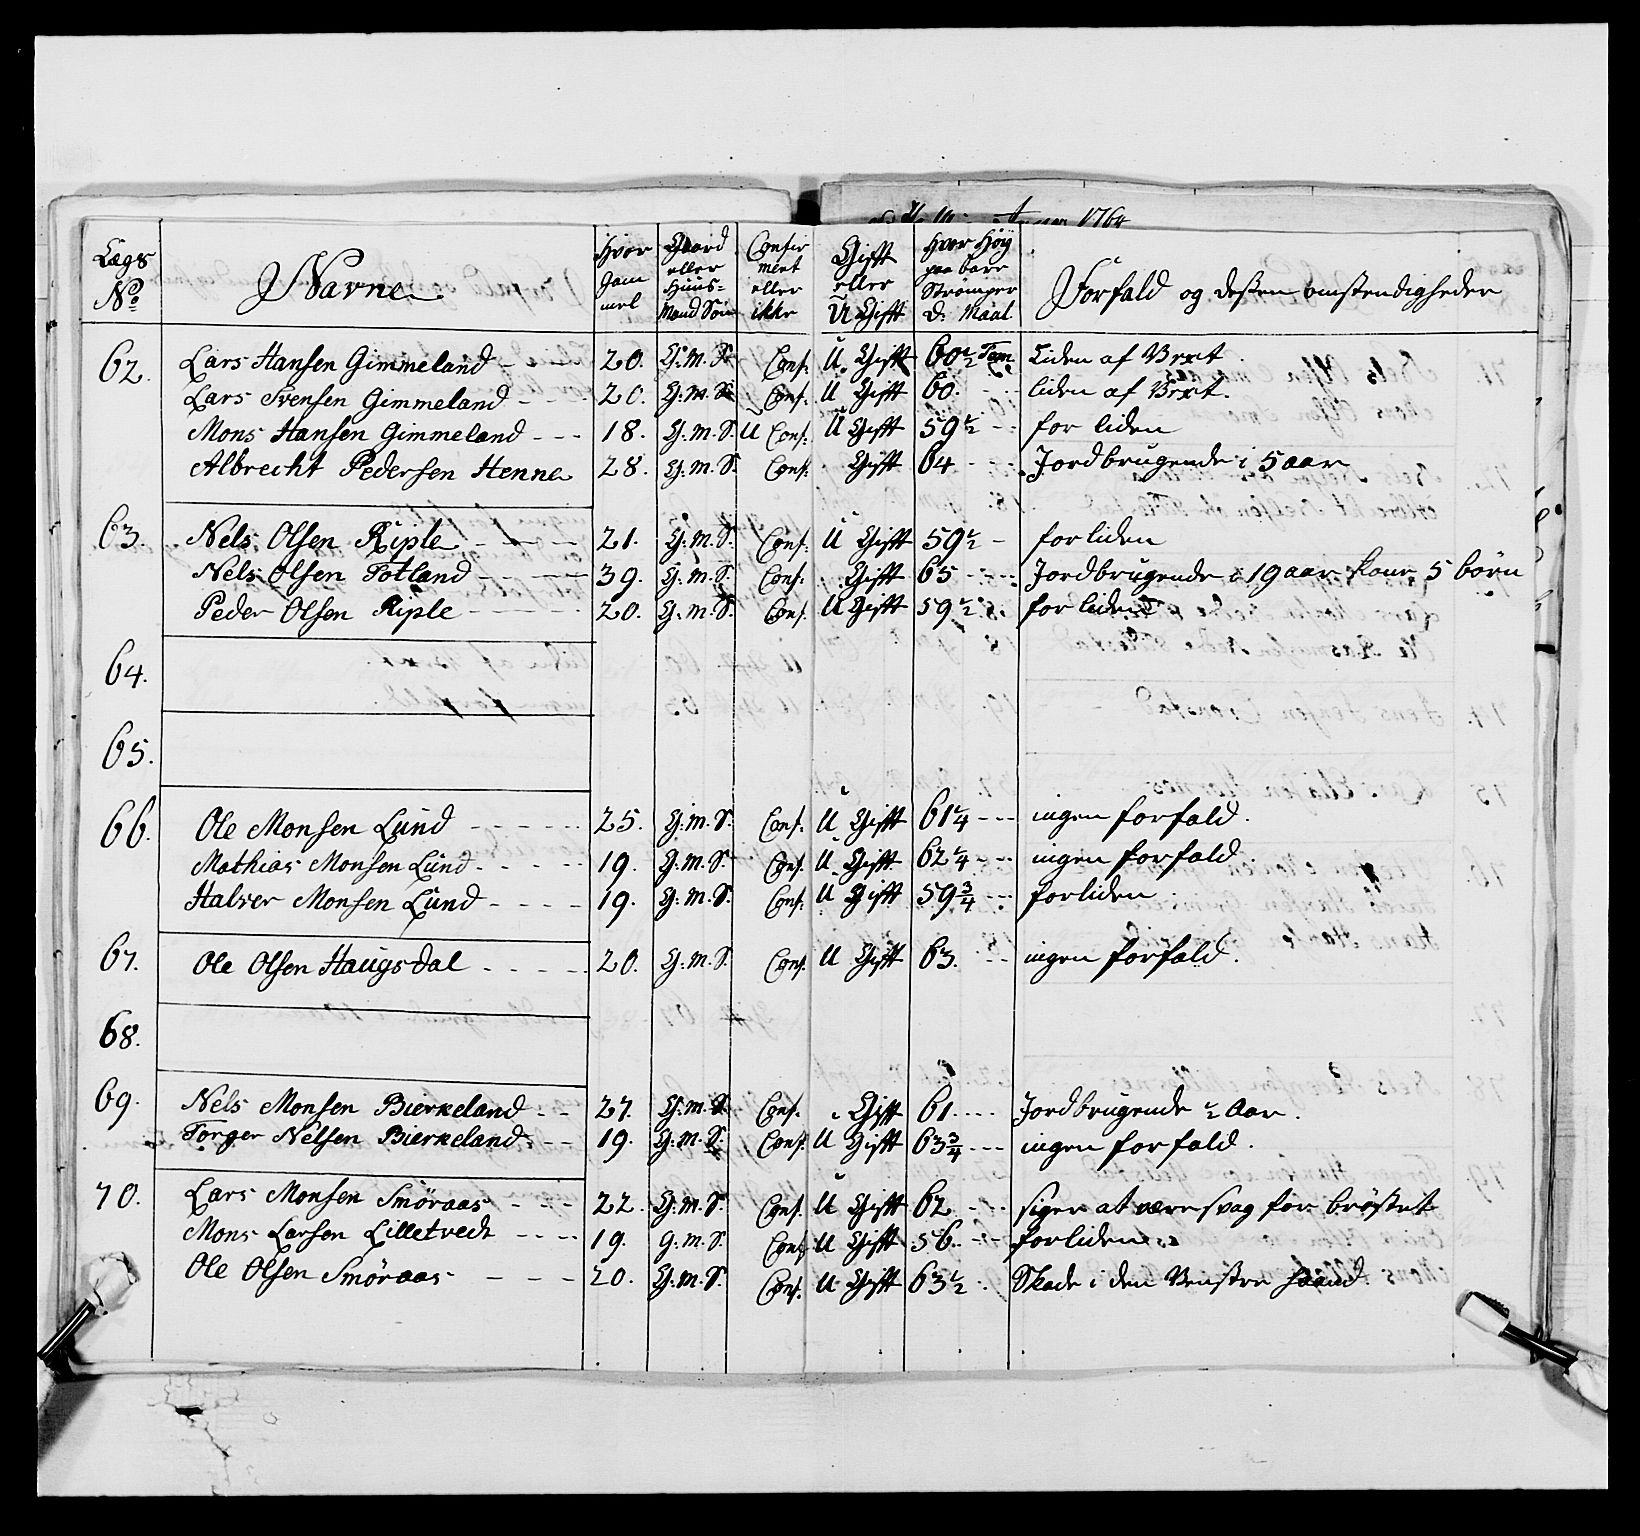 1764
Lægs No Navne Hvor Gam mel Gaard eller Huus= Mand Søn Confir ment eller ikke Gift eller U Gift Hvor Høy paa bare Strømper D: Maal Forfald og desten omstendigheder
62. Lars Hansen Gimmeland - - - 20. G: M. S. Conf: U. Gift 60½ Tom. Liden af Vext.
Lars Svensen Gimmeland - - - 20. G: M. S. Conf: U Gift 60. liden af Vext.
Mons Hansen Gimmeland - - - 18. G: M. S. U Conf: U Gift 59½ for liden
Albrecht Pedersen Henne 28. G: M. S. Conf: Gift 64 - - - Jordbrugende i 5 aar
63. Nels Olsen Riple - - - 21. G: M. S. Conf: U Gift 59½ - for liden
Nels Olsen Totland - - - 39. G: M. S. Conf: Gift 65 - - - Jordbrugende i 19 aar kone 5 børn
Peder Olsen Riple - - - 20. G: M. S. Conf: U Gift 59½ - for liden
64.
65.
66. Ole Monsen Lund - - - 25. G: M. S. Conf: U Gift 61¼ - - - ingen forfald.
Mathias Monsen Lund - - - 19. G: M. S. Conf. U Gift 62¼ - - - ingen forfald.
Halver Monsen Lund - - - 19. G: M. S. Conf: U Gift 59¾ - - - forliden
67. Ole Olsen Haugsdal - - - 20. G: M. S. Conf. U Gift 63. - - ingen forfald.
68.
69. Nels Monsen Bierkeland - - 27. G: M. S. Conf. Gift 61. - - - Jordbrugende ½ Aar.
Torger Nelsen Bierkeland - - 19. G: M. S. Conf. U Gift 63¾ - - - ingen forfald.
70. Lars Monsen Smöraas - - - 22. G: M. S. Conf. U Gift 62 - - - siger at være svag for bröstet
Mons Larsen Lilletvedt - - - 19. G. M. S. Conf U Gift 56. - - - forliden
Ole Olsen Smöraas - - - 20. G: M. S. Conf. U Gift 63½ - Skade i den Venstre Haand.